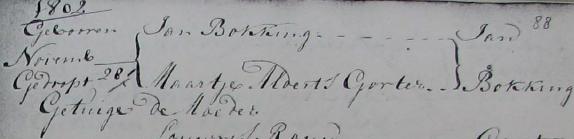 1802
Gebooren Jan Bokking - - - - - Jan 88
Novemb
Gedoopt 28 Maartje Alberts Gorter - - Bokking
Getuige de Moeder